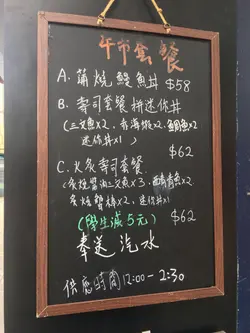 午市套餐
A. 蒲燒鰻魚丼 $58
B. 寿司套餐拼迷你丼
(三文魚x2, 赤海蝦x2, 鯛魚x2
迷你丼x1)
$62
C. 火炙寿司套餐
(火炙醬油三文魚x2,
火炙蟹棒x2, 迷你丼x1)
(學生減5元) $62
奉送 汽水
供應時間 12:00-2:30